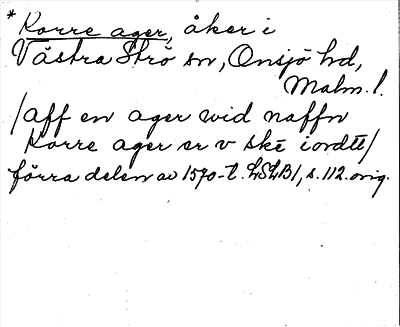 * Korre ager, åker i
Västra Strö sn, Onsjö hd,
Malm. l.
/aff en ager wid naffn
Korre ager er v skē iordtt/
förra delen av 1570-t. LSLB1, s. 112. orig.